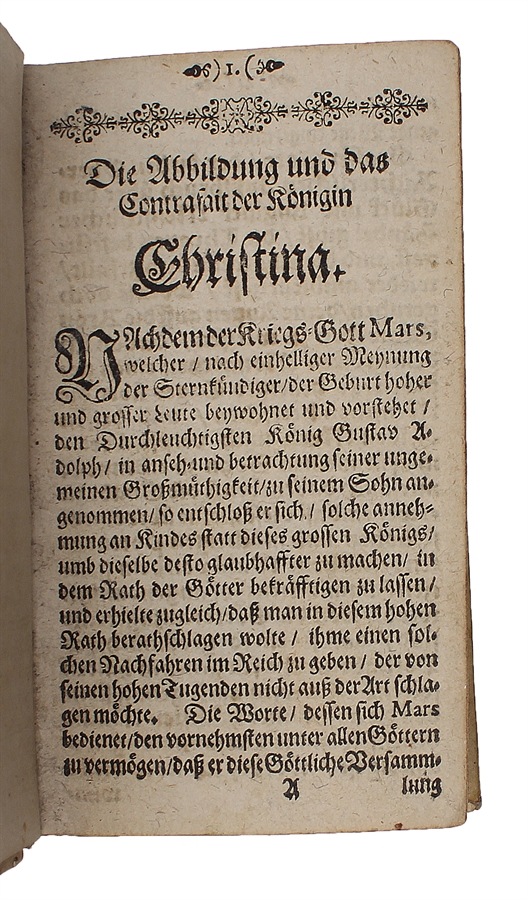 ) 1. (
Die Abbildung und das
Contrafait der Königin
Christina.
NAchdem der Kriegs-Gott Mars,
welcher / nach einhelliger Meynung
der Sternkündiger / der Geburt hoher
und grosser Leute beywohnet und vorstehet /
den Durchleuchtigsten König Gustav A-
dolph / in anseh-und betrachtung seiner unge-
meinen Großmüthigkeit / zu seinem Sohn an-
genommen / so entschloß er sich / solche anneh-
mung an Kindes statt dieses grossen Königs /
umb dieselbe desto glaubhaffter zu machen / in
dem Rath der Götter bekräfftigen zu lassen /
und erhielte zugleich / daß man in diesem hohen
Rath berathschlagen wolte / ihme einen sol-
chen Nachfahren im Reich zu geben / der von
seinen hohen Tugenden nicht auß der Art schla-
gen möchte. Die Worte / dessen sich Mars
bedienet / den vornehmsten unter allen Göttern
zu vermögen / daß er diese Göttliche Versamm-
A lung